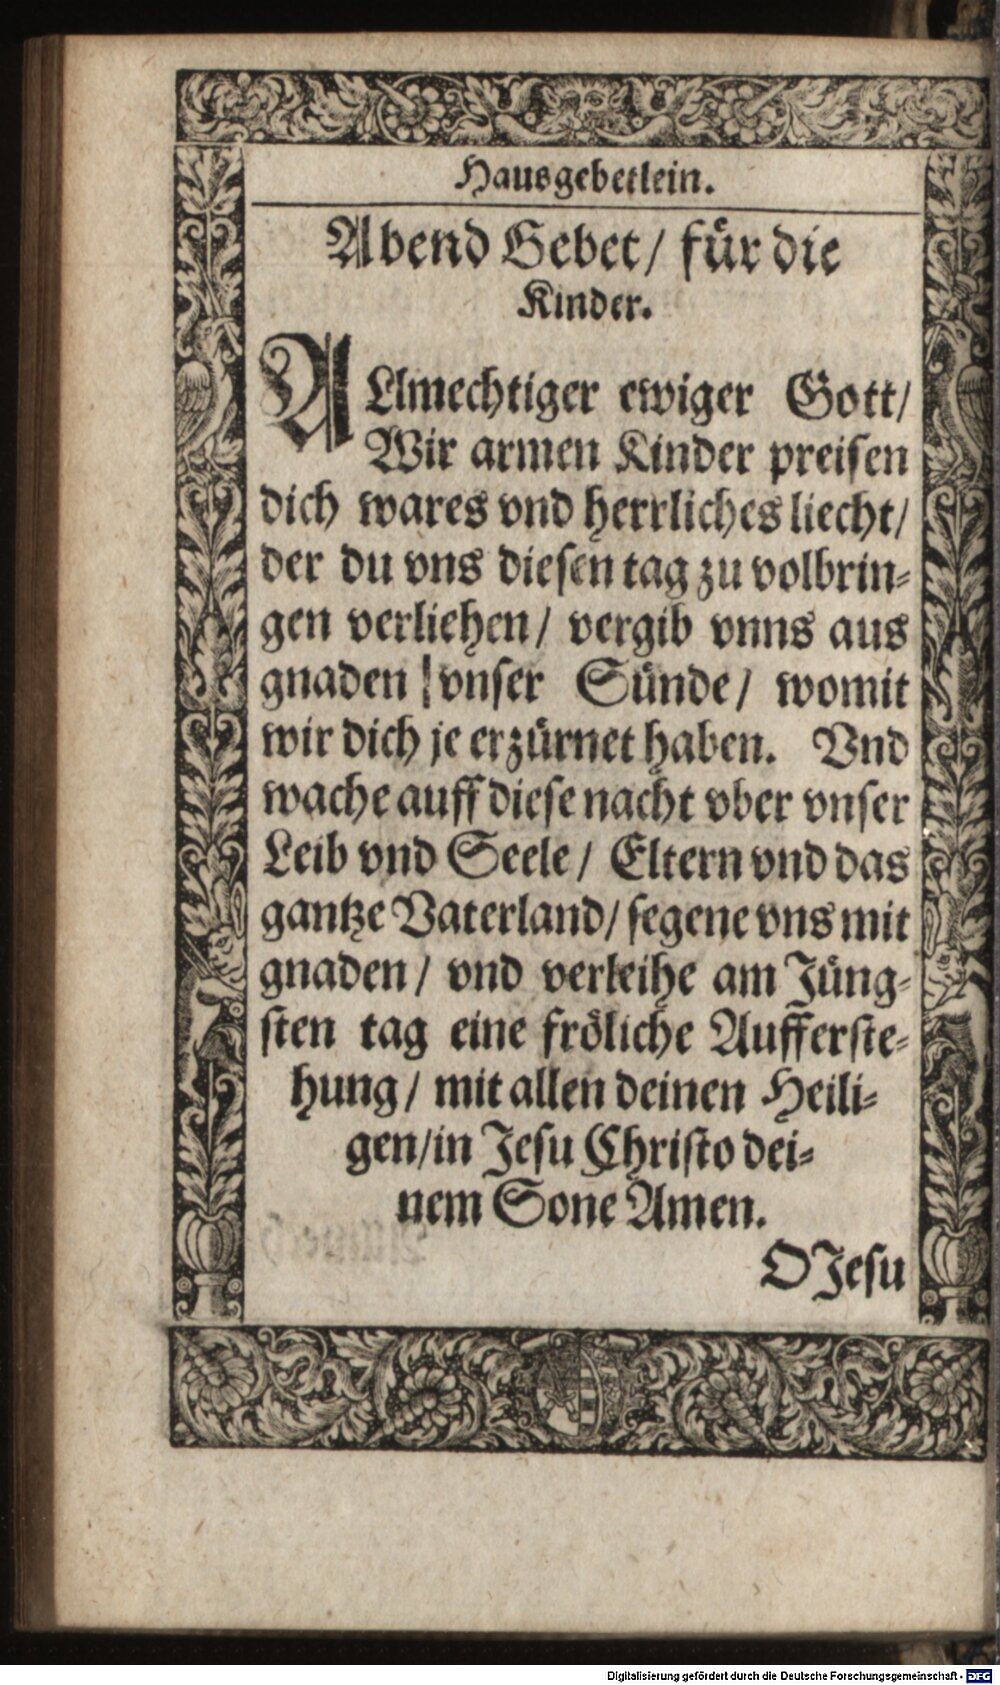 Hausgebetlein.
Abend Gebet / für die
Kinder.
ALlmechtiger ewiger Gott /
Wir armen Kinder preisen
dich wares vnd herrliches liecht /
der du vns diesen tag zu volbrin-
gen verliehen / vergib vnns aus
gnaden / vnser Sünde / womit
wir dich je erzürnet haben. Vnd
wache auff diese nacht vber vnser
Leib vnd Seele / Eltern vnd das
gantze Vaterland / segene vns mit
gnaden / vnd verleihe am Jüng-
sten tag eine fröliche Aufferste-
hung / mit allen deinen Heili-
gen / in Jesu Christo dei-
nem Sone Amen.
O Jesu
Digitalisierung gefördert durch die Deutsche Forschungsgemeinschaft - DFG